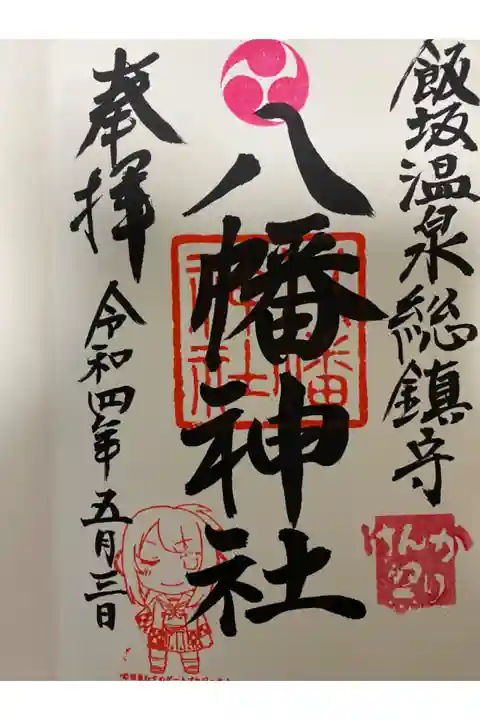 飯坂温泉総鎮守
けんか
祭り
八幡神社
八幡
神社
奉拝
令和四年五月三日